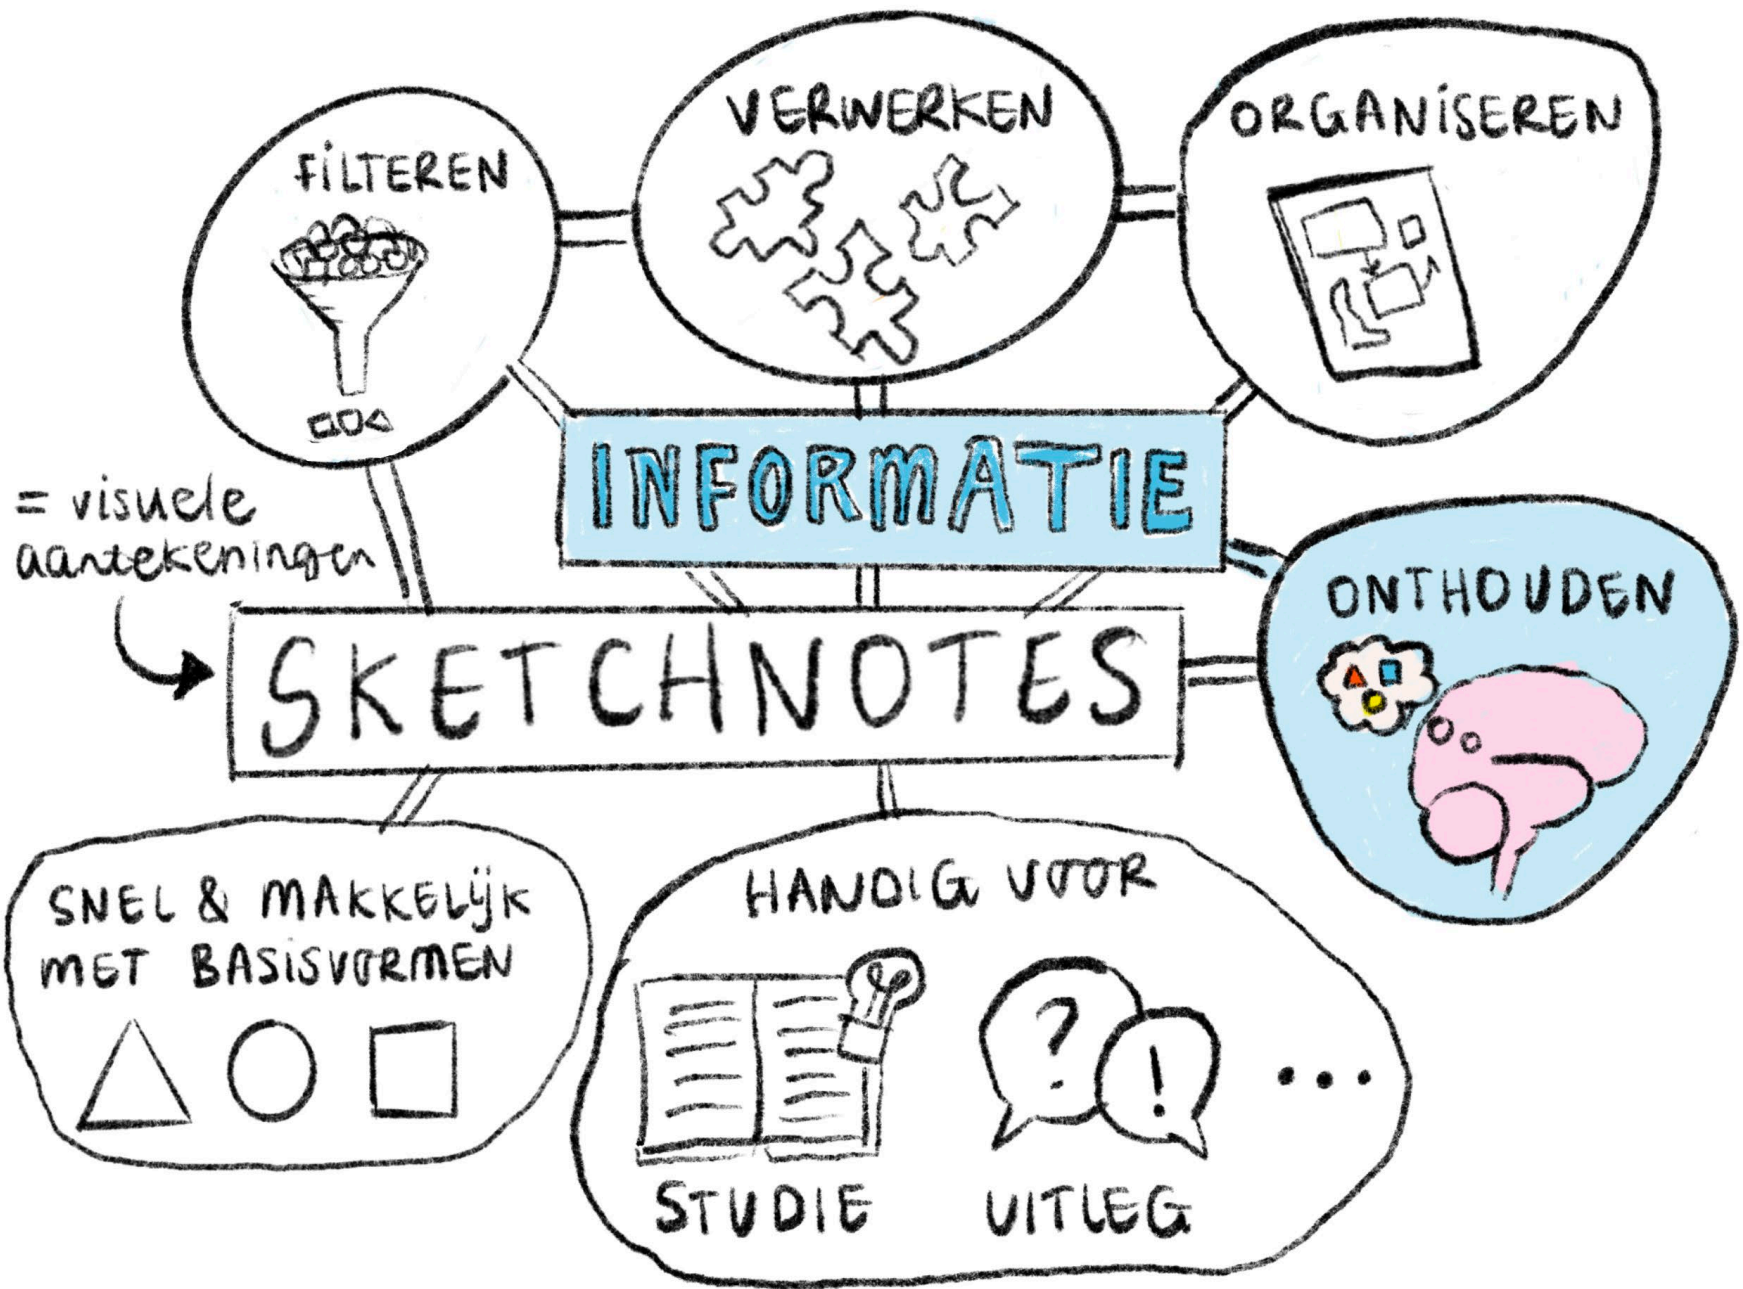 FILTEREN
VERWERKEN
ORGANISEREN
INFORMATIE
= visuele
aantekeningen
SKETCHNOTES
ONTHOUDEN
SNEL & MAKKELIJK
MET BASISVORMEN
HANDIG VOOR
? ! ...
STUDIE UITLEG